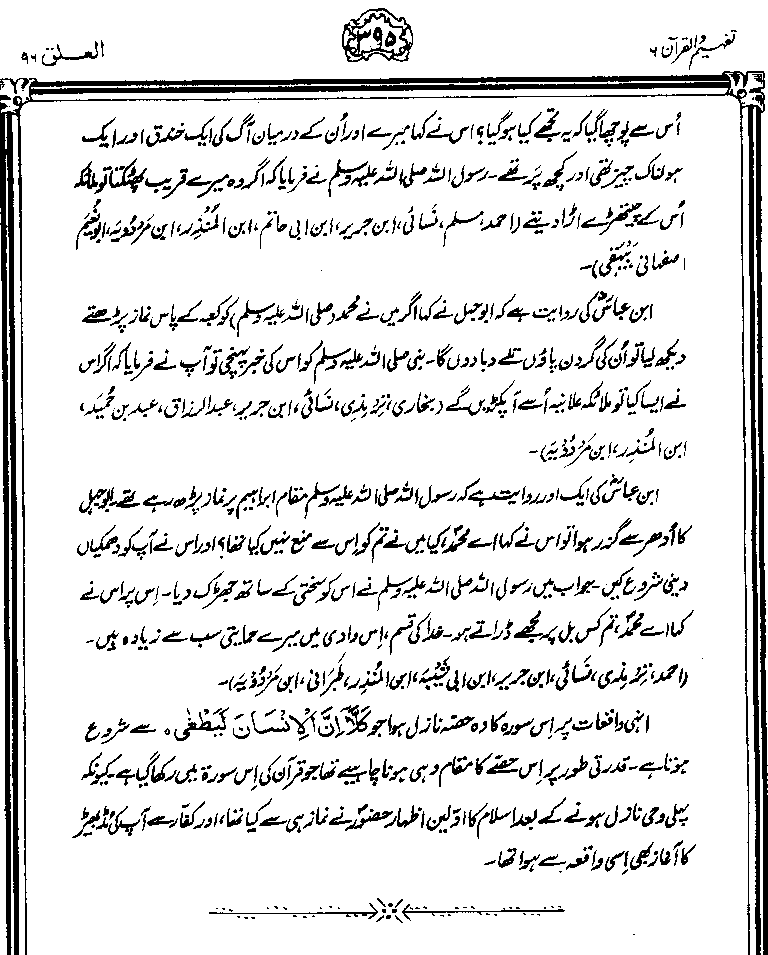 تفہیم القرآن ۶
۳۹۵
العلق ۹۶
اُس سے پوچھا گیا کہ یہ تجھے کیا ہو گیا؟ اس نے کہا میرے اور اُن کے درمیان آگ کی ایک خندق اور ایک
ہولناک چیز تھی اور کچھ پَر تھے۔ رسول اللہ صلی اللہ علیہ وسلم نے فرمایا کہ اگر وہ میرے قریب پھٹکتا تو ملائکہ
اُس کے چیتھڑے اڑا دیتے (احمد، مسلم، نَسائی، ابن جریر، ابن ابی حاتم، ابن المُنْذِر، ابن مَرْدُوْیَہ، ابونُعَیم
اصفہانی، بَیْہَقی)۔
ابن عباسؓ کی روایت ہے کہ ابوجہل نے کہا اگر میں نے محمد (صلی اللہ علیہ وسلم) کو کعبہ کے پاس نماز پڑھتے
دیکھ لیا تو اُن کی گردن پاؤں تلے دبا دوں گا۔ نبی صلی اللہ علیہ وسلم کو اس کی خبر پہنچی تو آپ نے فرمایا کہ اگر اس
نے ایسا کیا تو ملائکہ علانیہ اُسے آ پکڑیں گے (بخاری، تِرْمِذی، نَسائی، ابن جریر، عبدالرزاق، عبد بن حُمَید،
ابن المُنْذِر، ابن مَرْدُوْیَہ)۔
ابن عباسؓ کی ایک اور روایت ہے کہ رسول اللہ صلی اللہ علیہ وسلم مقام ابراہیم پر نماز پڑھ رہے تھے۔ ابوجہل
کا اُدھر سے گزر ہوا تو اس نے کہا اے محمدؐ، کیا میں نے تم کو اِس سے منع نہیں کیا تھا؟ اور اس نے آپ کو دھمکیاں
دینی شروع کیں۔ جواب میں رسول اللہ صلی اللہ علیہ وسلم نے اس کو سختی کے ساتھ جھڑک دیا۔ اِس پر اس نے
کہا اے محمدؐ، تم کس بل پر مجھے ڈراتے ہو۔ خدا کی قسم، اِس وادی میں میرے حمایتی سب سے زیادہ ہیں۔
(احمد، تِرْمِذی، نَسائی، ابن جریر، ابن ابی شَیْبَہ، ابن المُنْذِر، طَبَرانی، ابن مَرْدُوْیَہ)۔
انہی واقعات پر اِس سورہ کا وہ حصّہ نازل ہوا جو كَلَّا إِنَّ الْإِنْسَانَ لَيَطْغٰى ہ سے شروع
ہوتا ہے۔ قدرتی طور پر اِس حصّے کا مقام وہی ہونا چاہیے تھا جو قرآن کی اِس سورۃ میں رکھا گیا ہے کیونکہ
پہلی وحی نازل ہونے کے بعد اسلام کا اوّلین اظہار حضورؐ نے نماز ہی سے کیا تھا، اور کفّار سے آپ کی مڈبھیڑ
کا آغاز بھی اِسی واقعہ سے ہوا تھا۔